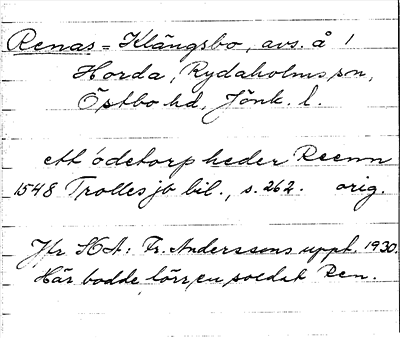 Renas = Klängsbo, avs. å 1
Horda, Rydaholms sn,
Östbo hd, Jönk. l.
ett ödetorp heder Reenn
1548 Trollesjö bil., s. 262. orig.
Jfr SOA: Fr. Anderssons uppt. 1930.
Här bodde förr en soldat Ren.